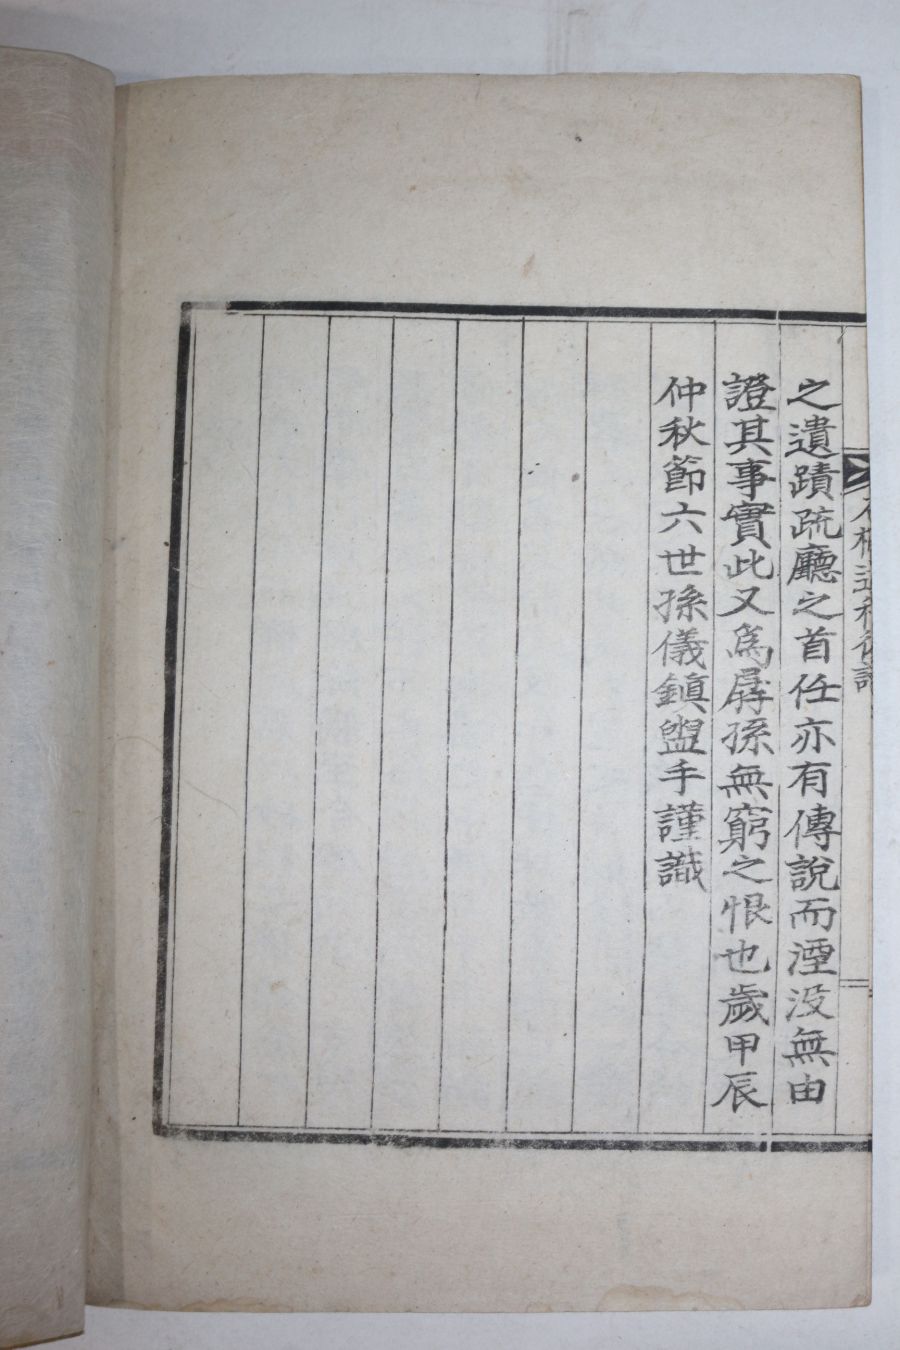 之遺蹟疏廳之首任亦有傳說而湮没無由
證其事實此又爲孱孫無窮之恨也歲甲辰
仲秋節六世孫儀鎭盥手謹識